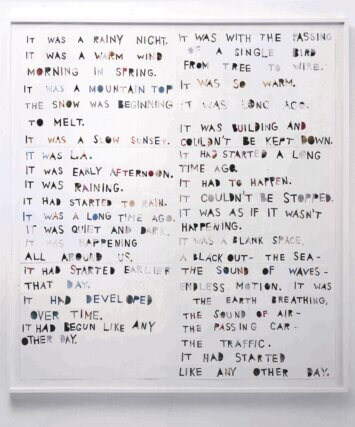 IT WAS A RAINY NIGHT.
IT WAS A WARM WIND
MORNING IN SPRING.
IT WAS A MOUNTAIN TOP
THE SNOW WAS BEGINNING
TO MELT.
IT WAS A SLOW SUNSET.
IT WAS L.A.
IT WAS EARLY AFTERNOON.
IT WAS RAINING.
IT HAD STARTED TO RAIN.
IT WAS A LONG TIME AGO.
IT WAS QUIET AND DARK.
IT WAS HAPPENING
ALL AROUND US.
IT HAD STARTED EARLIER
THAT DAY.
IT HAD DEVELOPED
OVER TIME.
IT HAD BEGUN LIKE ANY
OTHER DAY.
IT WAS WITH THE PASSING
OF A SINGLE BIRD
FROM TREE TO WIRE.
IT WAS SO WARM.
IT WAS LONG AGO.
IT WAS BUILDING AND
COULDN'T BE KEPT DOWN.
IT HAD STARTED A LONG
TIME AGO.
IT HAD TO HAPPEN.
IT COULDN'T BE STOPPED.
IT WAS AS IF IT WASN'T
HAPPENING.
IT WAS A BLANK SPACE.
A BLACK OUT- THE SEA-
THE SOUND OF WAVES-
ENDLESS MOTION. IT WAS
THE EARTH BREATHING,
THE SOUND OF AIR-
THE PASSING CAR-
THE TRAFFIC.
IT HAD STARTED
LIKE ANY OTHER DAY.